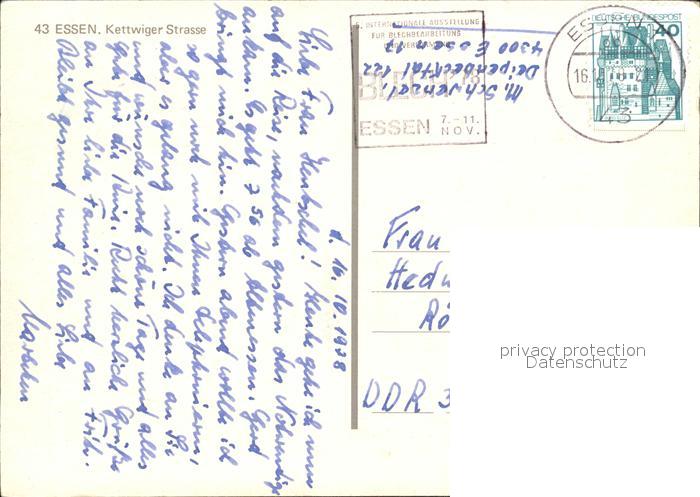 43 ESSEN. Kettwiger Strasse
d. 16. 10. 1978
Liebe Frau Hentschel! Heute geht ich nun
auf die Reise, nachdem gestern das
ankam. Es geht 7 56 ab Altenessen. Gerd
bringt mich hin. Gestern abend wollte ich
so gern noch mit Ihnen telephonieren,
aber es gelang nicht. Ich denke an Sie
und wünsche noch schöne Tage und alles
gute für die Reise. Recht herzliche Grüße
an Ihre liebe Familie und an
Bleibt gesund und alles Liebe
5. INTERNATIONALE AUSSTELLUNG
FÜR BLECHBEARBEITUNG
BLECH '78
ESSEN 7.-11.
NOV.
M.
Deipenbecktal 122
4300 Essen
DEUTSCHE BUNDESPOST
40
ESSEN
43
Frau
DDR 3
privacy protection
Datenschutz